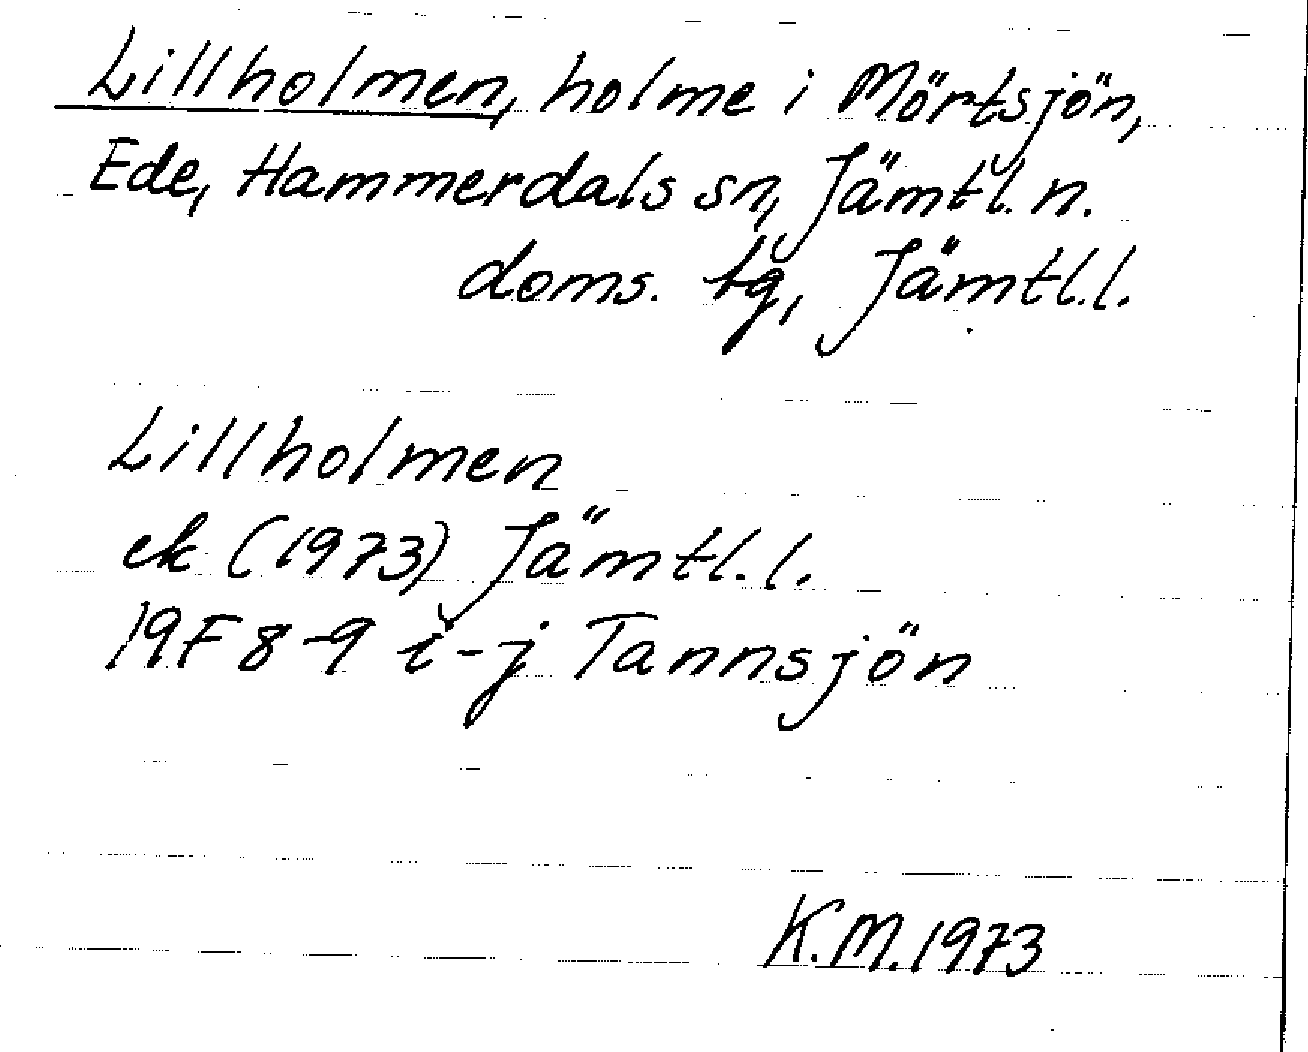 Lillholmen, holme i Mörtsjön,
Ede, Hammerdals sn, Jämtl. n.
doms. tg, Jämtl.l.
Lillholmen
ek (1973) Jämtl.l.
19F 8-9 i-j Tannsjön
K.M. 1973